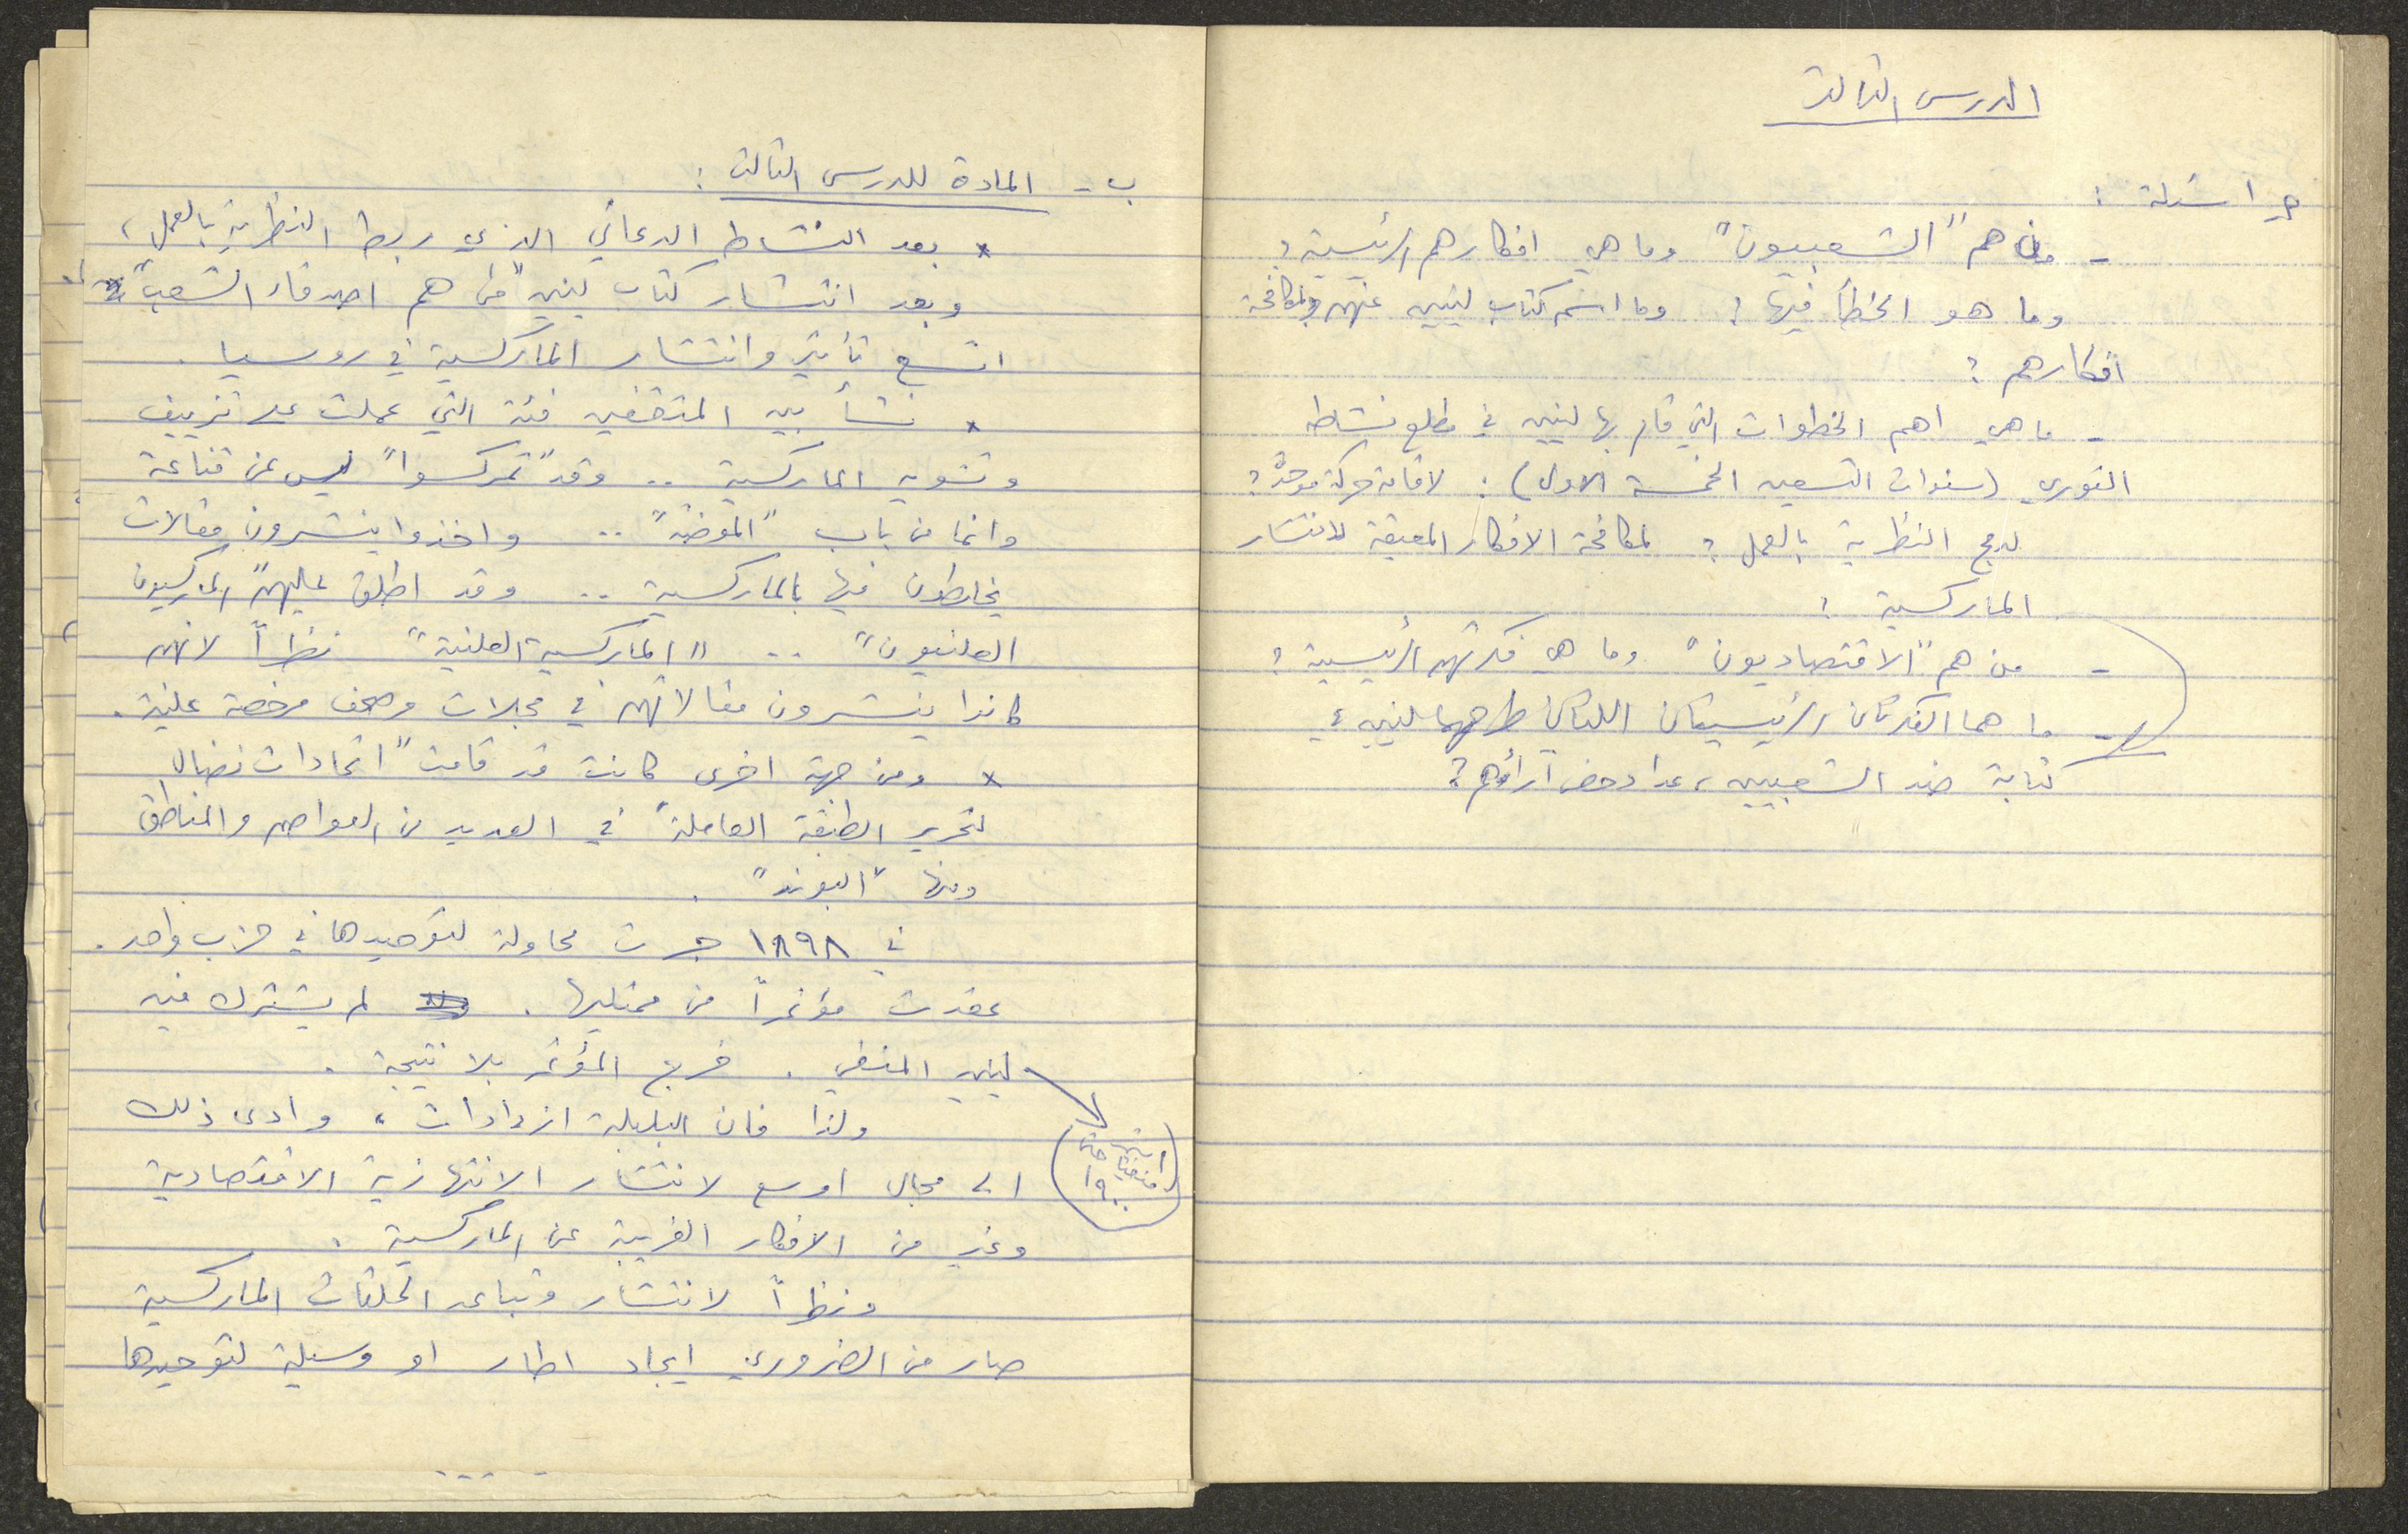 الدرس الثالث
ج اسئلة :
- من هم "الشعبيون" وما هي افكارهم الرئيسية ؟
وما هو الخطأ فيها ؟ وما اسم كتاب لينين عنهم ولمكافحة
افكارهم ؟
- ما هي اهم الخطوات التي قام بها لينين في مطلع نشاطه
الثوري (سنوات التسعين الخمسة الاولى) : لاقامة حركة موحدة ؟
لدمج النظرية بالعمل ؟ لمكافحة الافكار المعيقة لانتشار
الماركسية ؟
- من هم "الاقتصاديون" وما هي فكرتهم الرئيسية ؟
- ما هما الفكرتان الرئيسيتان اللتان طرحهما لينين في
كتابة ضد الشعبيين، عدا دحض آرائهم ؟
ب - المادة للدرس الثالث :
x بعد النشاط الدعائي الذي ربط النظرية بالعمل،
وبعد انتشار كتاب لينين "من هم اصدقاء الشعب"
اتسع تأثير وانتشار الماركسية في روسيا .
x نشأ بين المثقفين فئة التي عملت على تزييف
وتشويه الماركسية .. وقد "تمركسوا" ليس عن قناعة
وانما من باب "الموضة" .. واخذوا ينشرون مقالات
يخلطون فيها بالماركسية .. وقد اطلق عليهم "الماركسيون
العلنيون" .. "الماركسية العلنية" نظراً لانهم
كانوا ينشرون مقالاتهم في مجلات وصحف مرخصة علنية .
x ومن جهة اخرى كانت قد قامت "اتحادات نضال
لتحرير الطبقة العاملة" في العديد من العواصم والمناطق
ومنها "البوند" .
في ١٨٩٨ جرت محاولة لتوحيدها في حزب واحد .
عقدت مؤتمراً من ممثليها . لم يشترك فيه
لينين المنفي . خرج المؤتمر بلا نتيجة .
ولذا فان البلبلة ازدادات، وادى ذلك
الى مجال اوسع لانتشار الانتهازية الاقتصادية
وغير من الافكار الغريبة عن الماركسية .
ونظراً لانتشار وتباعد الحلقات الماركسية
صار من الضروري ايجاد اطار او وسيلة لتوحيدها